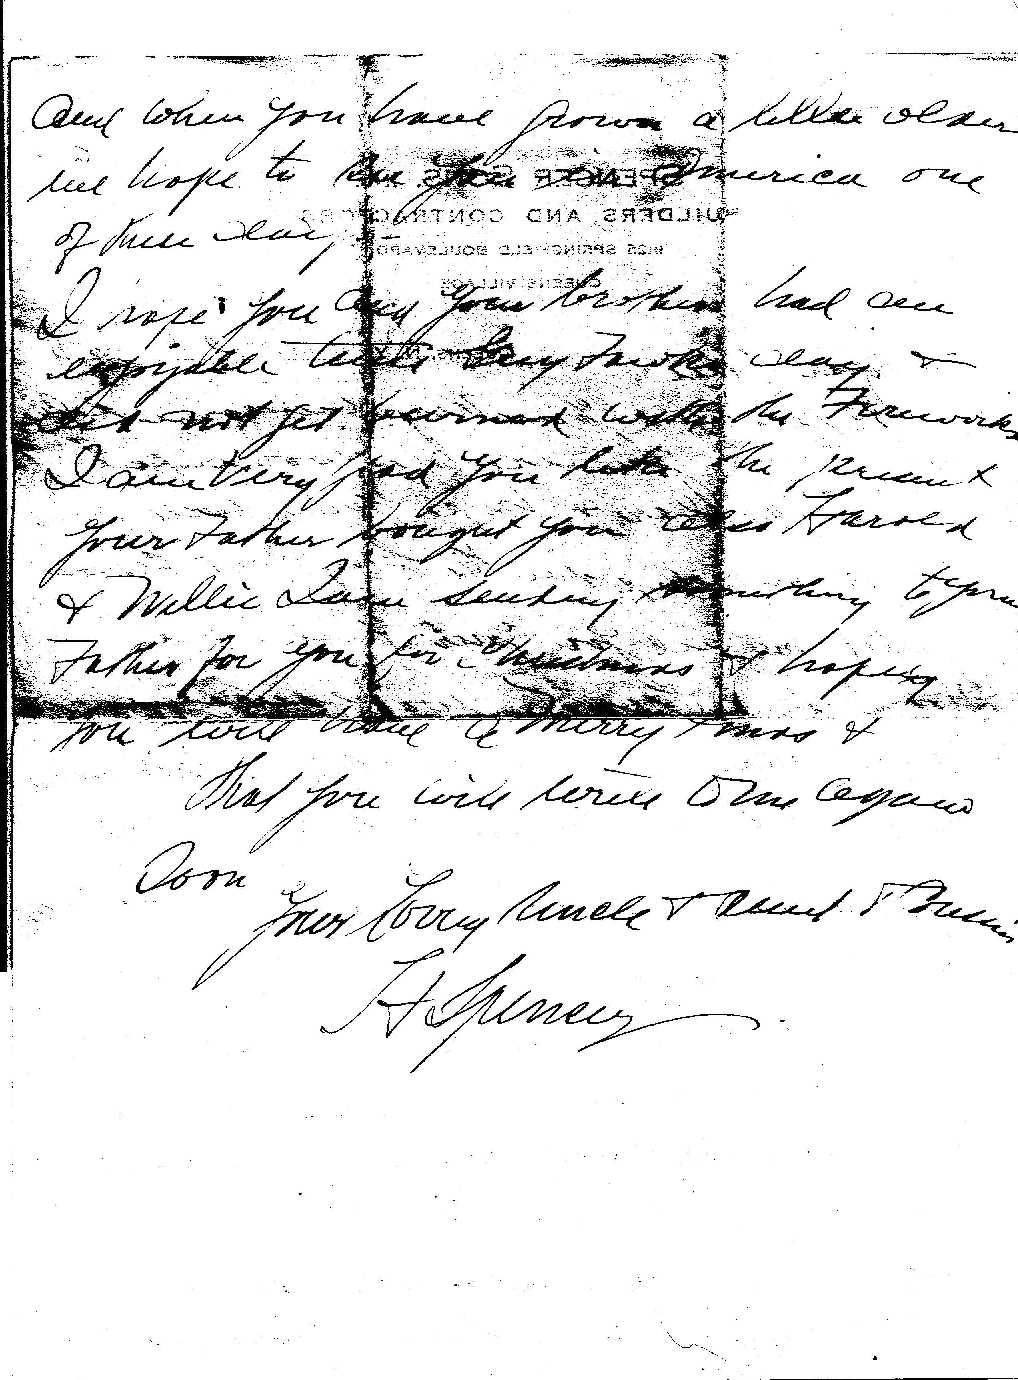 and when you have grown a little older
we hope to see you in America one
of these days
I hope you and your brothers had an
enjoyable time Guy Fawkes day &
did not get burned with the Fireworks
I am very glad you like the present
your Father bought you also Harold
& Willie I am sending something to your
Father for you for Christmas & hoping
you will have a Merry Xmas &
that you will write to me again
soon
Your Loving Uncle & Aunt & Cousins
H Spencer
SPENCER
BUILDERS AND CONTRACTORS
SPRINGFIELD BOULEVARD
QUEENS VILLAGE